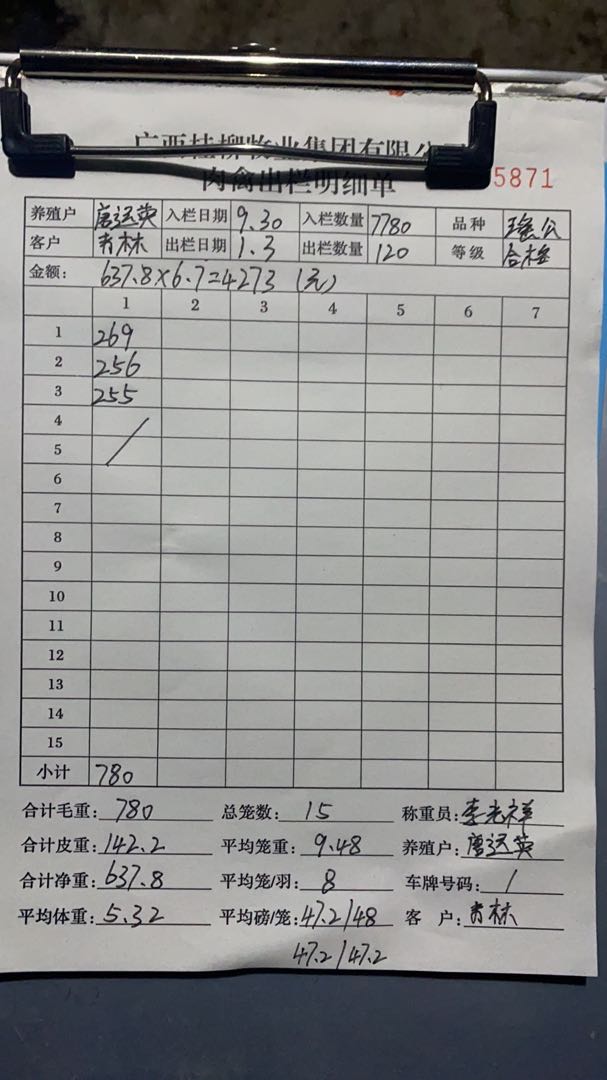 广西桂柳牧业集团有限公
肉禽出栏明细单 5871
养殖户 唐运英 入栏日期 9.30 入栏数量 7780 品种 瑶公
客户 青林 出栏日期 1.3 出栏数量 120 等级 合格
金额： 637.8×6.7=4273（元）
1 2 3 4 5 6 7
1 269
2 256
3 255
4
5
6
7
8
9
10
11
12
13
14
15
小计 780
合计毛重：780 总笼数：15 称重员：李光祥
合计皮重：142.2 平均笼重：9.48 养殖户：唐运英
合计净重：637.8 平均笼/羽：8 车牌号码：/
平均体重：5.32 平均磅/笼：47.2/48 客 户：青林
47.2/47.2